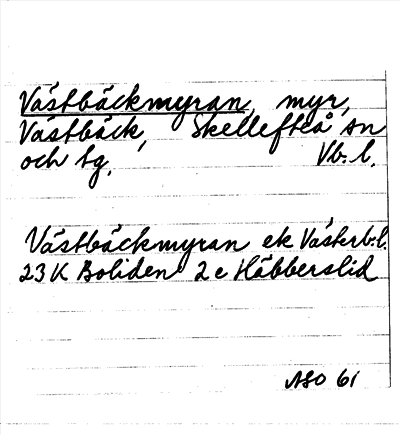 Västbäckmyran, myr,
Västbäck, Skellefteå sn
och tg, Vb. l.
Västbäckmyran ek Västerb.l.
23 K Boliden 2 c Häbberslid
ASO 61